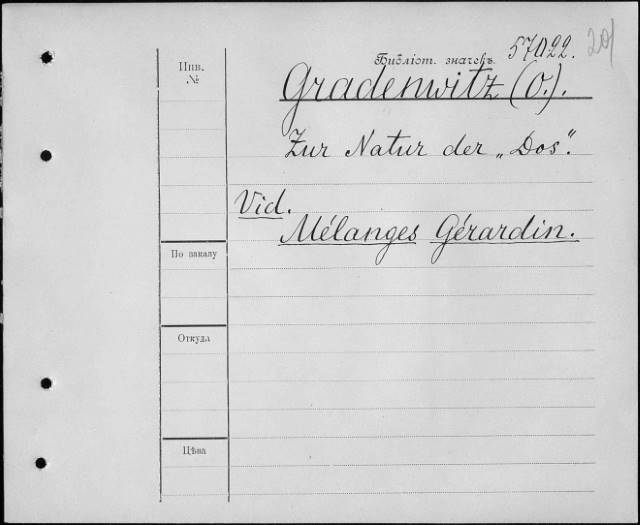 20
Библіот. значекъ 57022.
Инв.
№
Gradenwitz (O.).
Zur Natur der „Dos“.
Vid.
Mélanges Gérardin.
По заказу
Откуда
Цѣна